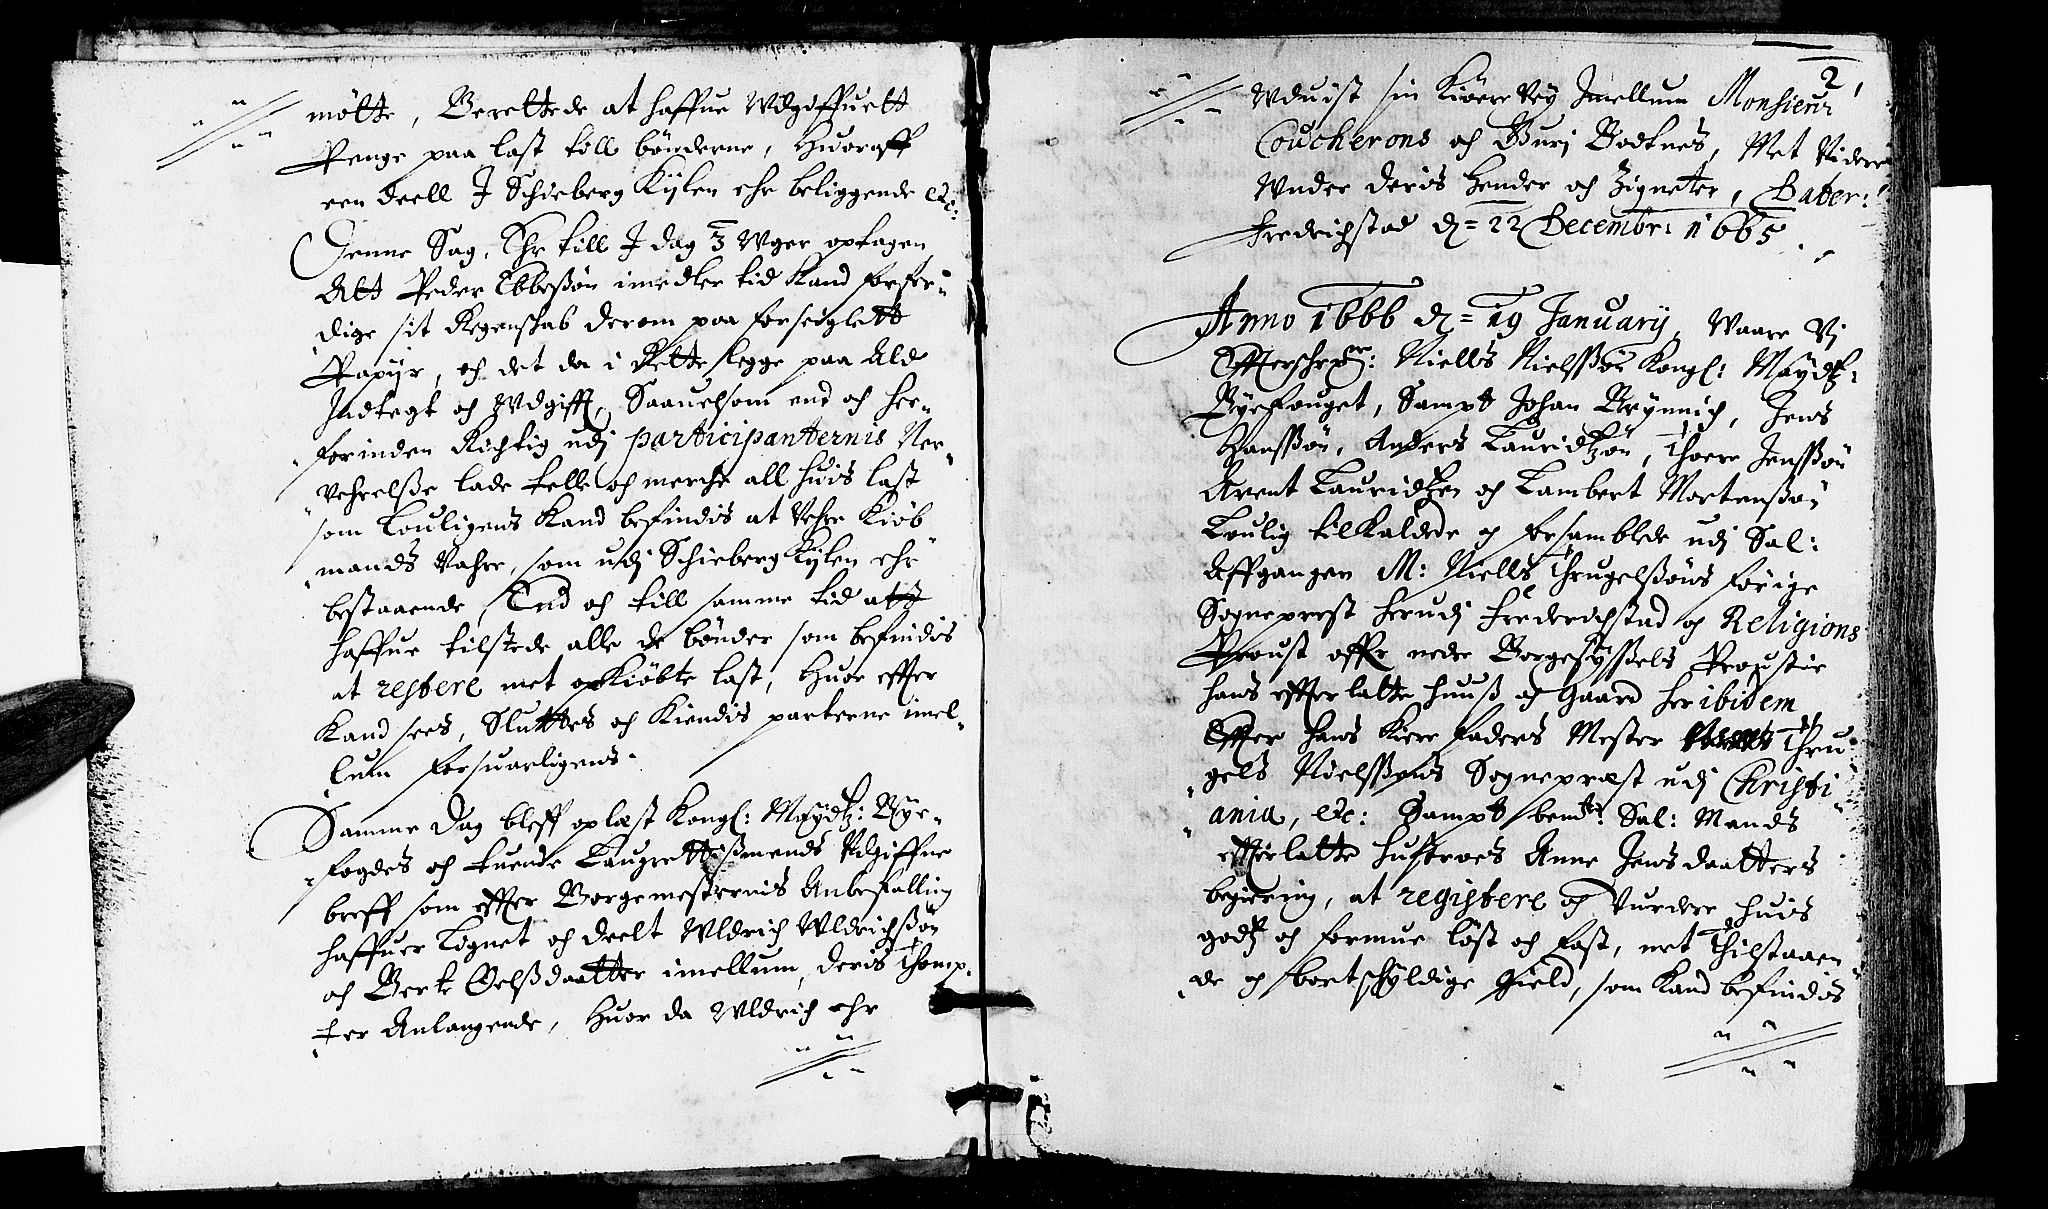 mötte, Berettede at haffue Udgiffuett
Penge paa last till bönderne, Huoraff
een deell J Schieberg Kijlen ehr beliggende etc:
Denne Sag, Ehr till J dag 3 Uger optagen
Att Peder Ebbesøn imidler tid Kand forfer-
dige sit Regenskab derom paa forseiglett
Papijr, och det da i Rette legge paa Ald
Indtegt och Udgifft, Saauelsom end och her-
forinden Richtig udj participanternis Ner-
vehrelsse lade telle och merche all huis last
som Louligens Kand befindis at Vehre Kiöb
mands Vahre, som udj Schieberg Kijlen ehr
bestaaende, End och till samme tid att
haffue tilstede alle de bønder som befindis
at restere met opKiöbte last, Huor effter
Kand sees, Sluttes och Kiendis parterne imel-
lum forsuarligens.
Samme Dag bleff oplæst Kongl: Maÿdtz: Bye-
fogdes och tuende Laugrettismends Udgiffne
breff som effter Borgemesternis Anbefalling
haffuer Lignet och deelt Uldrich Uldrichsøn
och Berte Oelsdaatter imellum, deris Thomp-
ter Anlangende, Huor da Uldrich ehr
2
Uduist sin Kiøere Vey Jmellum Monsieur
Coucherons och Burj Bodtnes, Met Videre
Under deris Hender och Zigneter, Dater:
Fredrichstad d= 22 Decembr: 1665.
Anno 1666 d= 19 Januarij, Waare Vj
Effterschrne: Niells Nielssøn Kongl: Maÿdtz:
Byefouget, Sampt Johan Brynnich, Jens
Hanssøn, Anders Lauridtzøn, Thore Jenssøn
Arent Lauridtzen och Lambert Mortensøn
Loulig tilkaldede og forsamblede udj Sal:
Affgangen M: Niells Thrugelsøns forige
Sogneprest herudj Frederichstad og Religions
Proust offr nedre Borgesyssels Proustie
hans effterlatte huus og Gaard her ibidem
Effter hans Kiere Faders Mester Thru-
gels Nielssøns Sognepræst udj Christi
ania, etc: Sampt bemte: Sal: Mands
effterlatte hustroes Anne Jensdaatters
begiering, at registere og Vurdere huis
godtz och formue löst och fast, met Thilstaaen
de og bortschyldige Gield, som Kand befindis